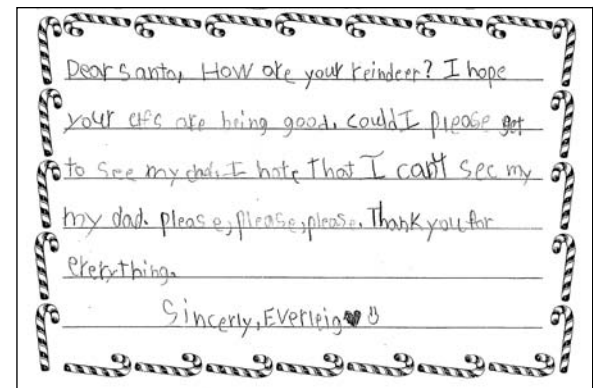 Dear Santa, How are your reindeer? I hope
your elfs are being good. Could I please get
to see my dad. I hate that I can't see my
my dad. please, please, please. Thank you for
everything.
Sincerly, Everleig♥